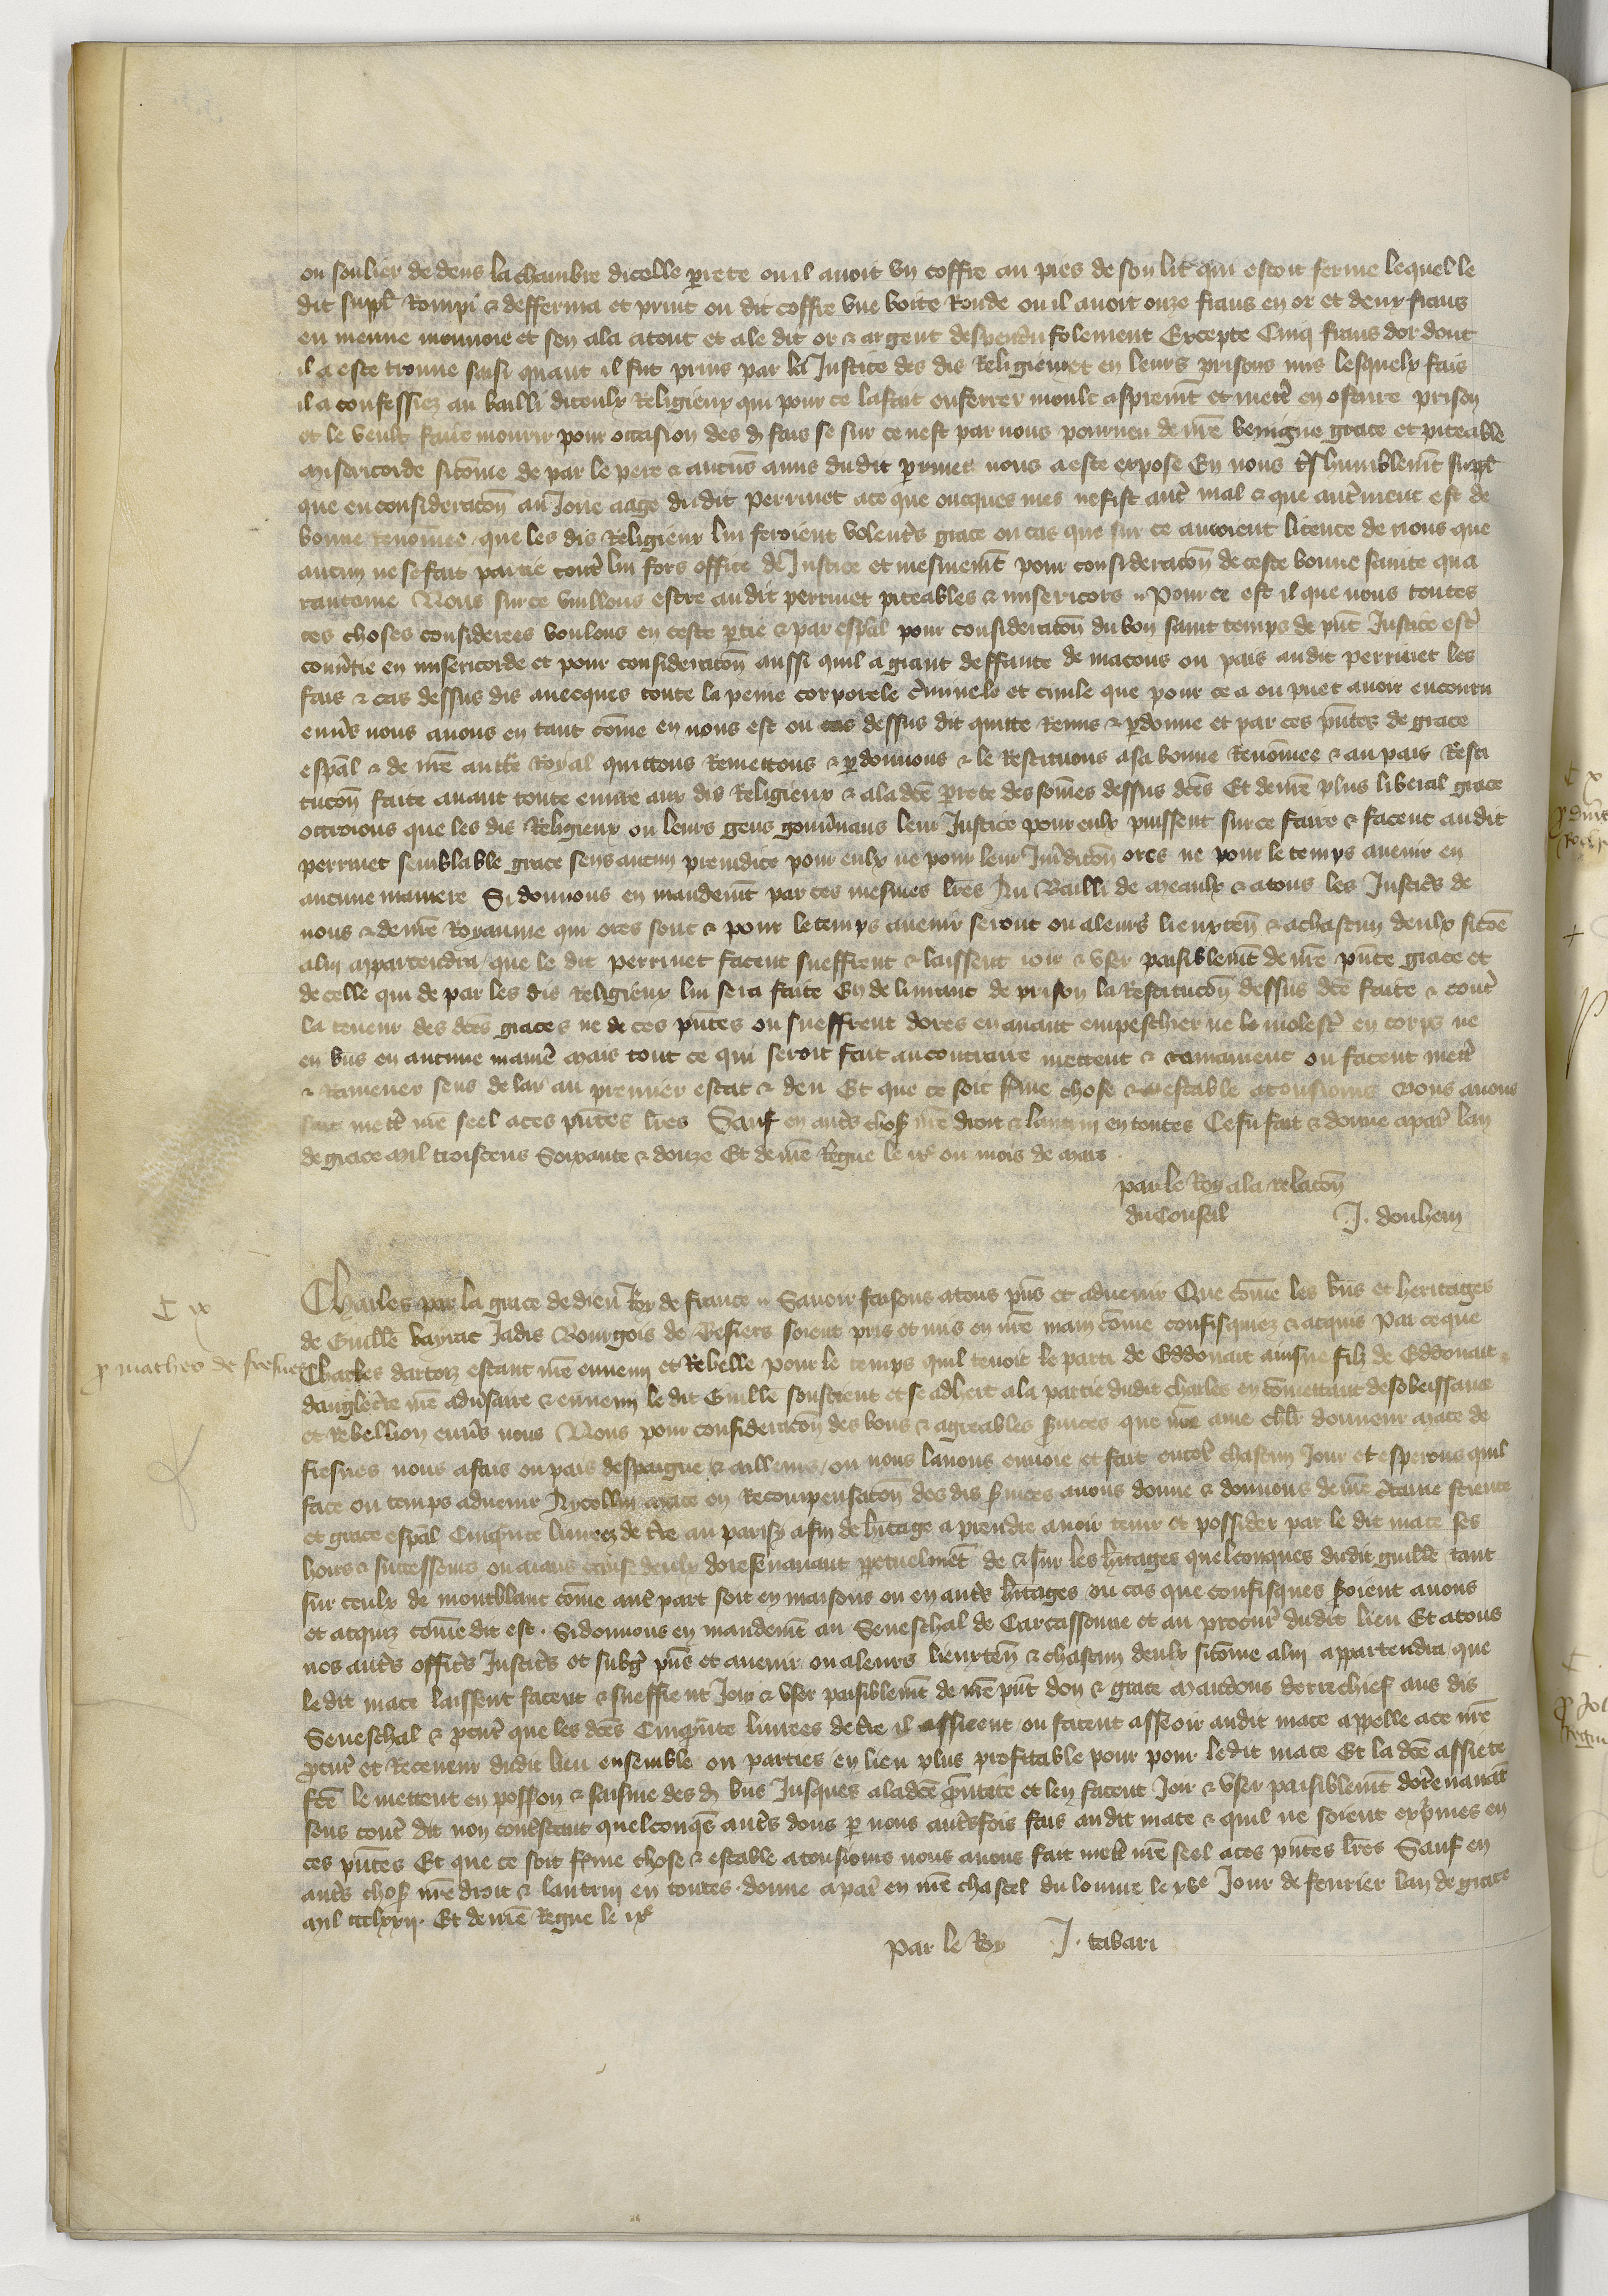 ou soulier de dens la chambre dicelle perrete ou il avoit un coffre au pies de son lit qui estoit ferme lequel le
dit suppl. Rompi & defferma et print ou dit coffre une boite Ronde ou il avoit onze frans en or et deux frans
en menue monnoie et sen ala atout et a le dit or & argent despendu folement Excepte Cinq frans dor dont
il a este trouve saisi quant il fut prins par la Justice des dis Religieux et en leurs prisons mis lesquelx fais
il a confessiez au bailli diceulx Religieux qui pour ce la fait enferrer moult asprem̄t et mett̄ en oscure prison
et le veult faire mourir pour occasion des d. fais se sur ce nest par nous pourveu de n̄re benigne grace et piteable
misericorde sicōme de par le pere & aucuns amis du dit perrinet nous a este expose En nous t̄s humblem̄t suppl.
que en consideracōn au Jone aage du dit Perrinet a ce que oncques mes ne fist aut̄ mal & que aut̄ment est de
bonne Renōmee que les dis Religieux lui feroient volent̄s grace ou cas que sur ce auroient licence de nous que
aucun ne se fait partie cont̄ lui fors office de Justice et mesmem̄t pour consideracōn de ceste bonne sainte qua
rantaine Nous sur ce vuillons estre au dit perrinet piteables & misericors Pour ce est il que nous toutes
ces choses considerees voulons en ceste p̄tie & par esp̄al pour consideracōn du bon saint temps de p̄nt Justice est̄
conv̄tie en misericorde et pour consideracōn aussi quil a grant deffaute de macons ou pais au dit perrinet les
fais & cas dessus dis avecques toute la peine corporele c̄iminele et civile que pour ce a ou puet avoir encouru
env̄s nous avons en tant cōme en nous est ou cas dessus dit quitte Remis & p̄donne et par ces p̄ntes de grace
esp̄al & de n̄re auct̄e Royal quittons Remettons & p̄donnons & le Restituons a sa bonne Renōmee & au pais Resti
tucōn faite avant toute euvre aux dis Religieux & a la dc̄e p̄rete des sōmes dessus dc̄es Et de n̄re plus liberal grace
octroions que les dis Religieux ou leurs gens gouv̄nans leur Justice pour eulx puissent sur ce faire & facent au dit
perrinet semblable grace sens aucun preiudice pour eulx ne pour leur Jur̄dicōn ores ne pour le temps avenir en
aucune maniere Si donnons en mandem̄t par ces mesmes l̄res Au Bailli de Meaulx & a tous les Justic̄s de
nous & de n̄re Royaume qui ores sont & pour le temps avenir seront ou a leurs lieuxten̄ & a chascun deulx sicōe
a lui appartendra que le dit perrinet facent sueffrent & laissent ioir & user paisiblem̄t de n̄re p̄nte grace et
de celle qui de par les dis Religieux lui sera faite En delivrant de prison la Restitucōn dessus dc̄e faite & cont̄
la teneur des dc̄es graces ne de ces p̄ntes ou sueffrent dores en avant empeschier ne le molest̄ en corps ne
en b̄ns en aucune manie ̄ Mais tout ce qui seroit fait au contraire mettent & ramainent ou facent mett̄
& Ramener sens delay au premier estat & deu Et que ce soit f̄me chose & estable a tousiours Nous avons
fait mett̄ n̄re seel a ces p̄ntes l̄res Sauf en aut̄s chos̄ n̄re droit & lautrui en toutes Ce fu fait & donne a par̄ lan
de grace Mil troiscens Soixante & douze Et de n̄re Regne le ix.e ou mois de Mars
par le Roy a la relacōn
du Conseil J. douhem
C ix
p̄ matheo de fresnes
Charles par la grace de dieu Roy de france Savoir faisons a tous p̄ns et advenir Que cōme les b̄ns et heritages
de Guill̄e bayrac Jadis Bourgois de Besiers soient pris et mis en n̄re main cōme confisquiez & acquis Par ce que
Charles dartoiz estant n̄re ennemi et Rebelle pour le temps quil tenoit le parti de Eddouart ainsne filz de Eddouart
danglet̄re n̄re adv̄saire & ennemi le dit Guill̄e soustient et se adhert a la partie du dit Charles en cōmettant desobeissance
et Rebellion env̄s nous Nous pour consideracōn des bons & agreables s̄vices que n̄re ame ch̄lr donneur Mace de
fresnes nous a fais ou pais despaigne & ailleurs ou nous lavons envoie et fait encor̄ chascun Jour et esperons quil
face ou temps advenir A ycellui Mace en Recompensacōn des dis s̄vices avons donne & donnons de n̄re c̄taine science
et grace esp̄al Cinq̄nte livrees de t̄re au parisꝫ a fin de h̄itage a prendre avoir tenir et possider par le dit mace ses
hoirs & successeurs ou aians cause deulx doresenavant p̄petuelmēt de & sur les h̄itages quelconques du dit guill̄e tant
sur ceulx de montblanc cōme aut̄ part soit en maisons ou en aut̄s h̄itages ou cas que confisques s̄oient a nous
et acquiz cōme dit est. Si donnons en mandem̄t au Seneschal de Carcassonne et au procur̄ du dit lieu Et a tous
nos aut̄s offic̄s Justic̄s et subḡ p̄ns et avenir ou a leurs lieuxten̄ & chascun deulx sicōme a lui appartendra que
le dit mace laissent facent & sueffrent Joir & user paisiblem̄t de n̄re p̄nt don & grace Mandons derrechief aus dis
Seneschal & p̄cur̄ que les dc̄es Cinq̄nte livrees de t̄re il assieent ou facent asseoir au dit mace appelle a ce n̄re
p̄cur̄ et Receveur du dit lieu ensemble ou parties en lieu plus profitable pour pour le dit mace Et la dc̄e assiete
fc̄e le mettent en poss̄on & saisine des d. b̄ns Jusques a la dc̄e q̄ntite et len facent Joir & user paisiblem̄t dorēnavant
sens cont̄ dit non cont̄stant quelconq̄s aut̄s dons p̄ nous aut̄sfois fais au dit mace & quil ne soient exp̄mes en
ces p̄ntes Et que ce soit f̄me chose & estable a tousiours nous avons fait mett̄ n̄re seel a ces p̄ntes l̄res Sauf en
aut̄s chos̄ n̄re droit & lautrui en toutes. donne a par̄ en n̄re chastel du louvre le xv.e Jour de fevrier lan de grace
Mil ccclxxij. Et de n̄re Regne le ix.e
Par le Roy J. tabari